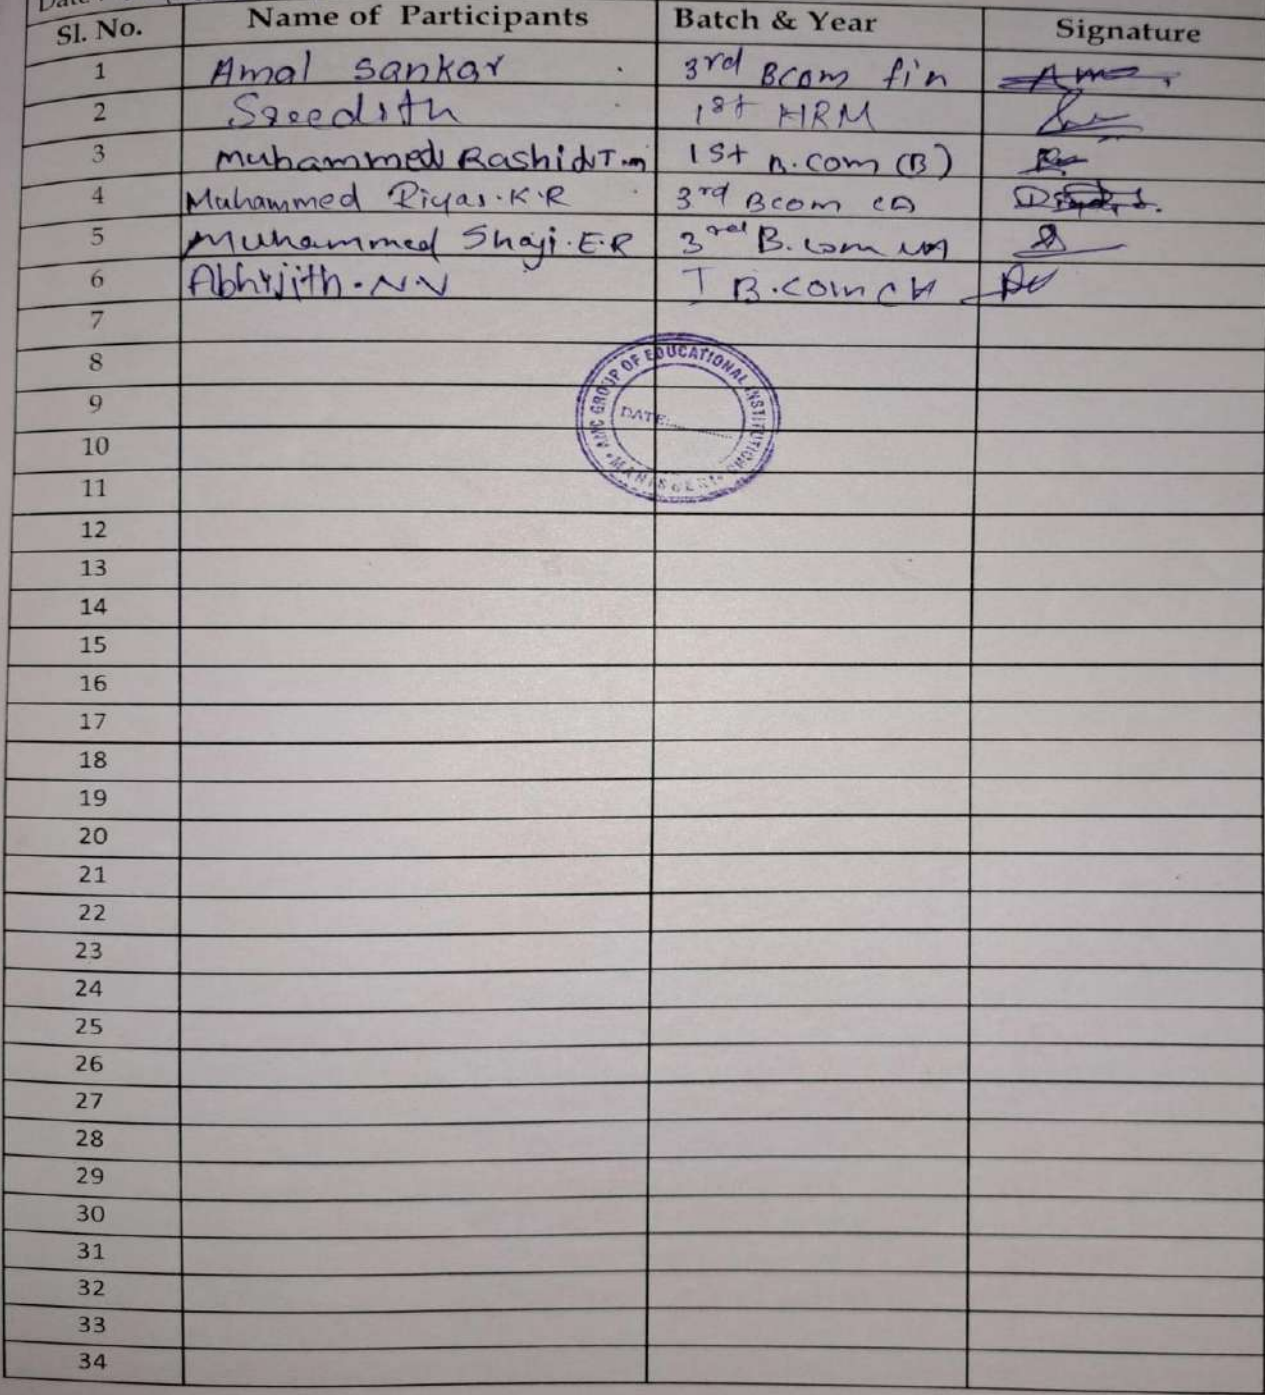 Date
Sl. No. Name of Participants Batch & Year Signature
1 Amal Sankar 3rd Bcom fin Ama
2 Sreedith 1st HRM
3 Muhammed Rashid T.m 1st B.com (B)
4 Muhammed Riyas.K.R 3rd Bcom CA
5 Muhammed Shaji.E.R 3rd B.com
6 Abhijith.N.V I B.com
7
8
9
10
11
12
13
14
15
16
17
18
19
20
21
22
23
24
25
26
27
28
29
30
31
32
33
34
GROUP OF EDUCATIONAL INSTITUTIONS
DATE: